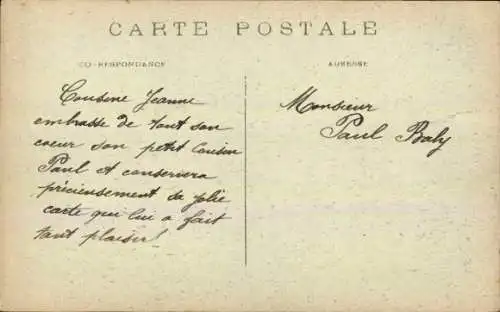 CARTE POSTALE
CORRESPONDANCE
ADRESSE
Cousine Jeanne
embrasse de tout son
coeur son petit Cousin
Paul et conservera
précieusement sa jolie
carte qui lui a fait
tant plaisir!
Monsieur
Paul Baly